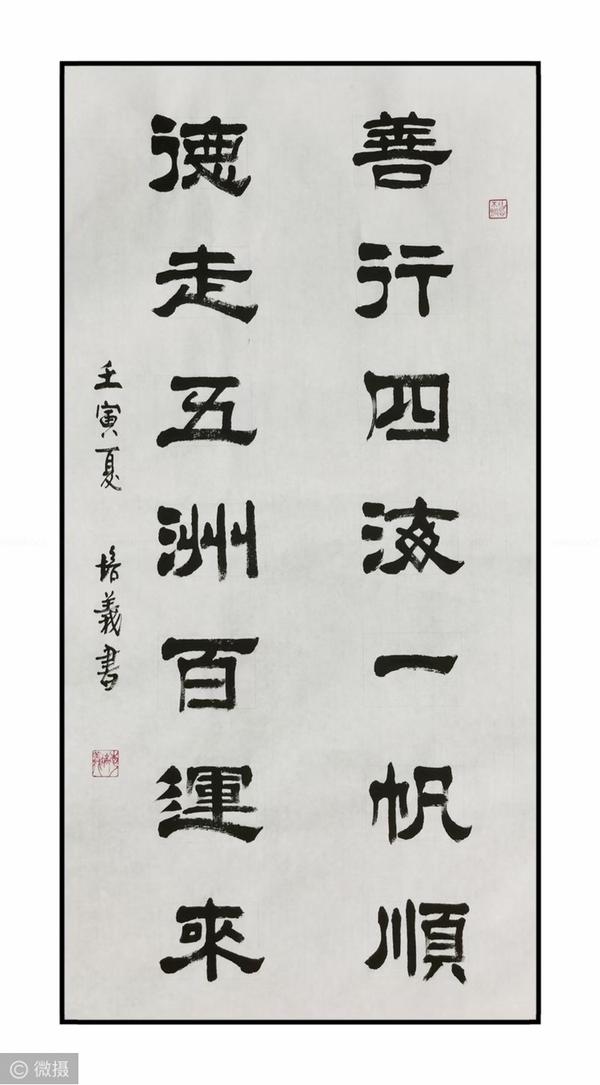 善行四海一帆順
德走五洲百運來
壬寅夏 培義書
© 微摄